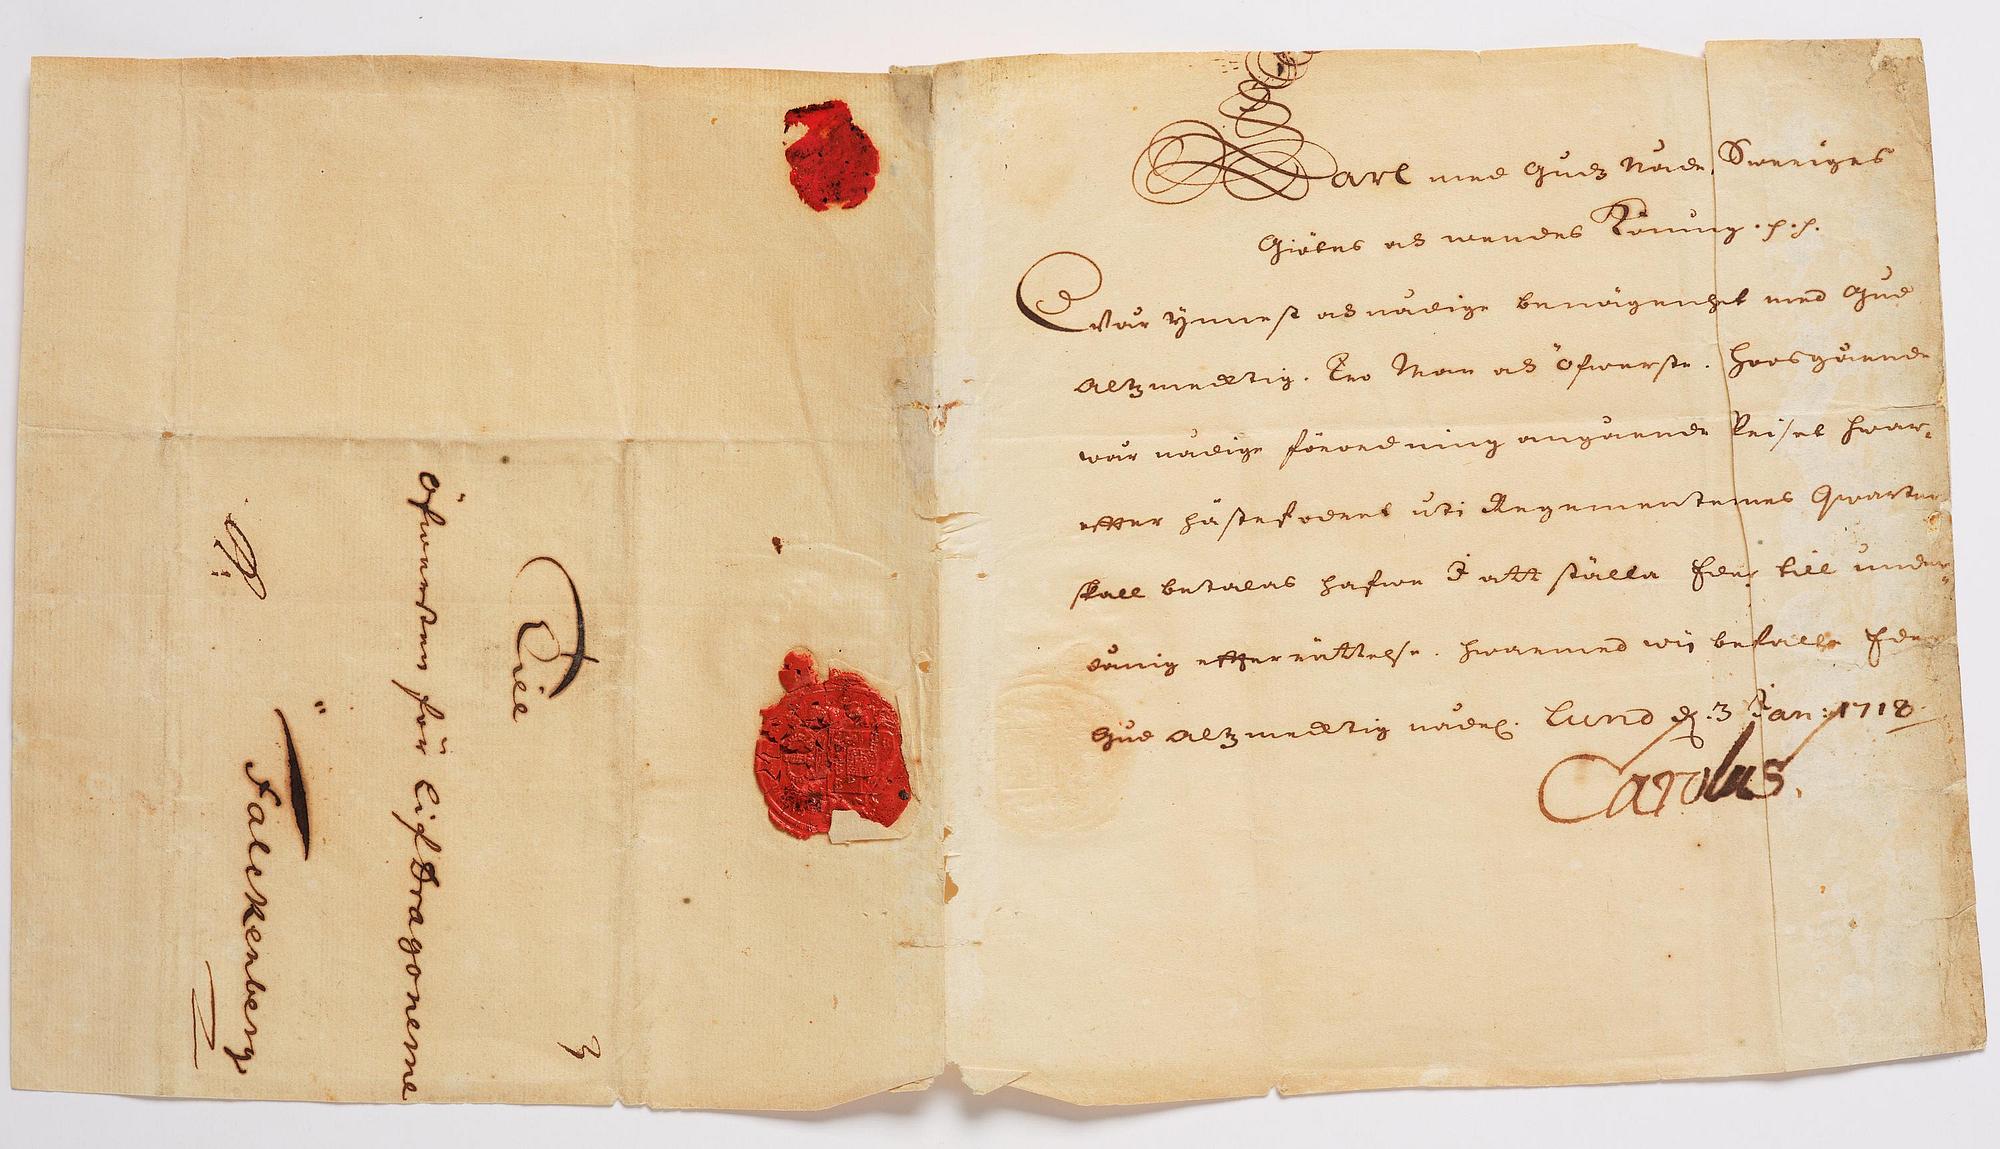 Carl med Gudz Nåde, Sweriges
Giötes och Wendes Konung .p.p.
Wår ynnest och nådige benägenhet med Gud
Alzmechtig. Tro Man och Öfwerste. Hoosgående
wår nådige förordning angående Prijset hwar-
effter hästefodret uti Regementernes Qwarter
skall betalas hafwe I att ställa Eder till under-
dånig effterrättelse. Hwarmed wij befalle Eder
Gud Alzmechtig nådel. Lund d. 3 Jan: 1718
Carolus.
3
Till
Öfwersten för LifDragonerne
Falckenberg